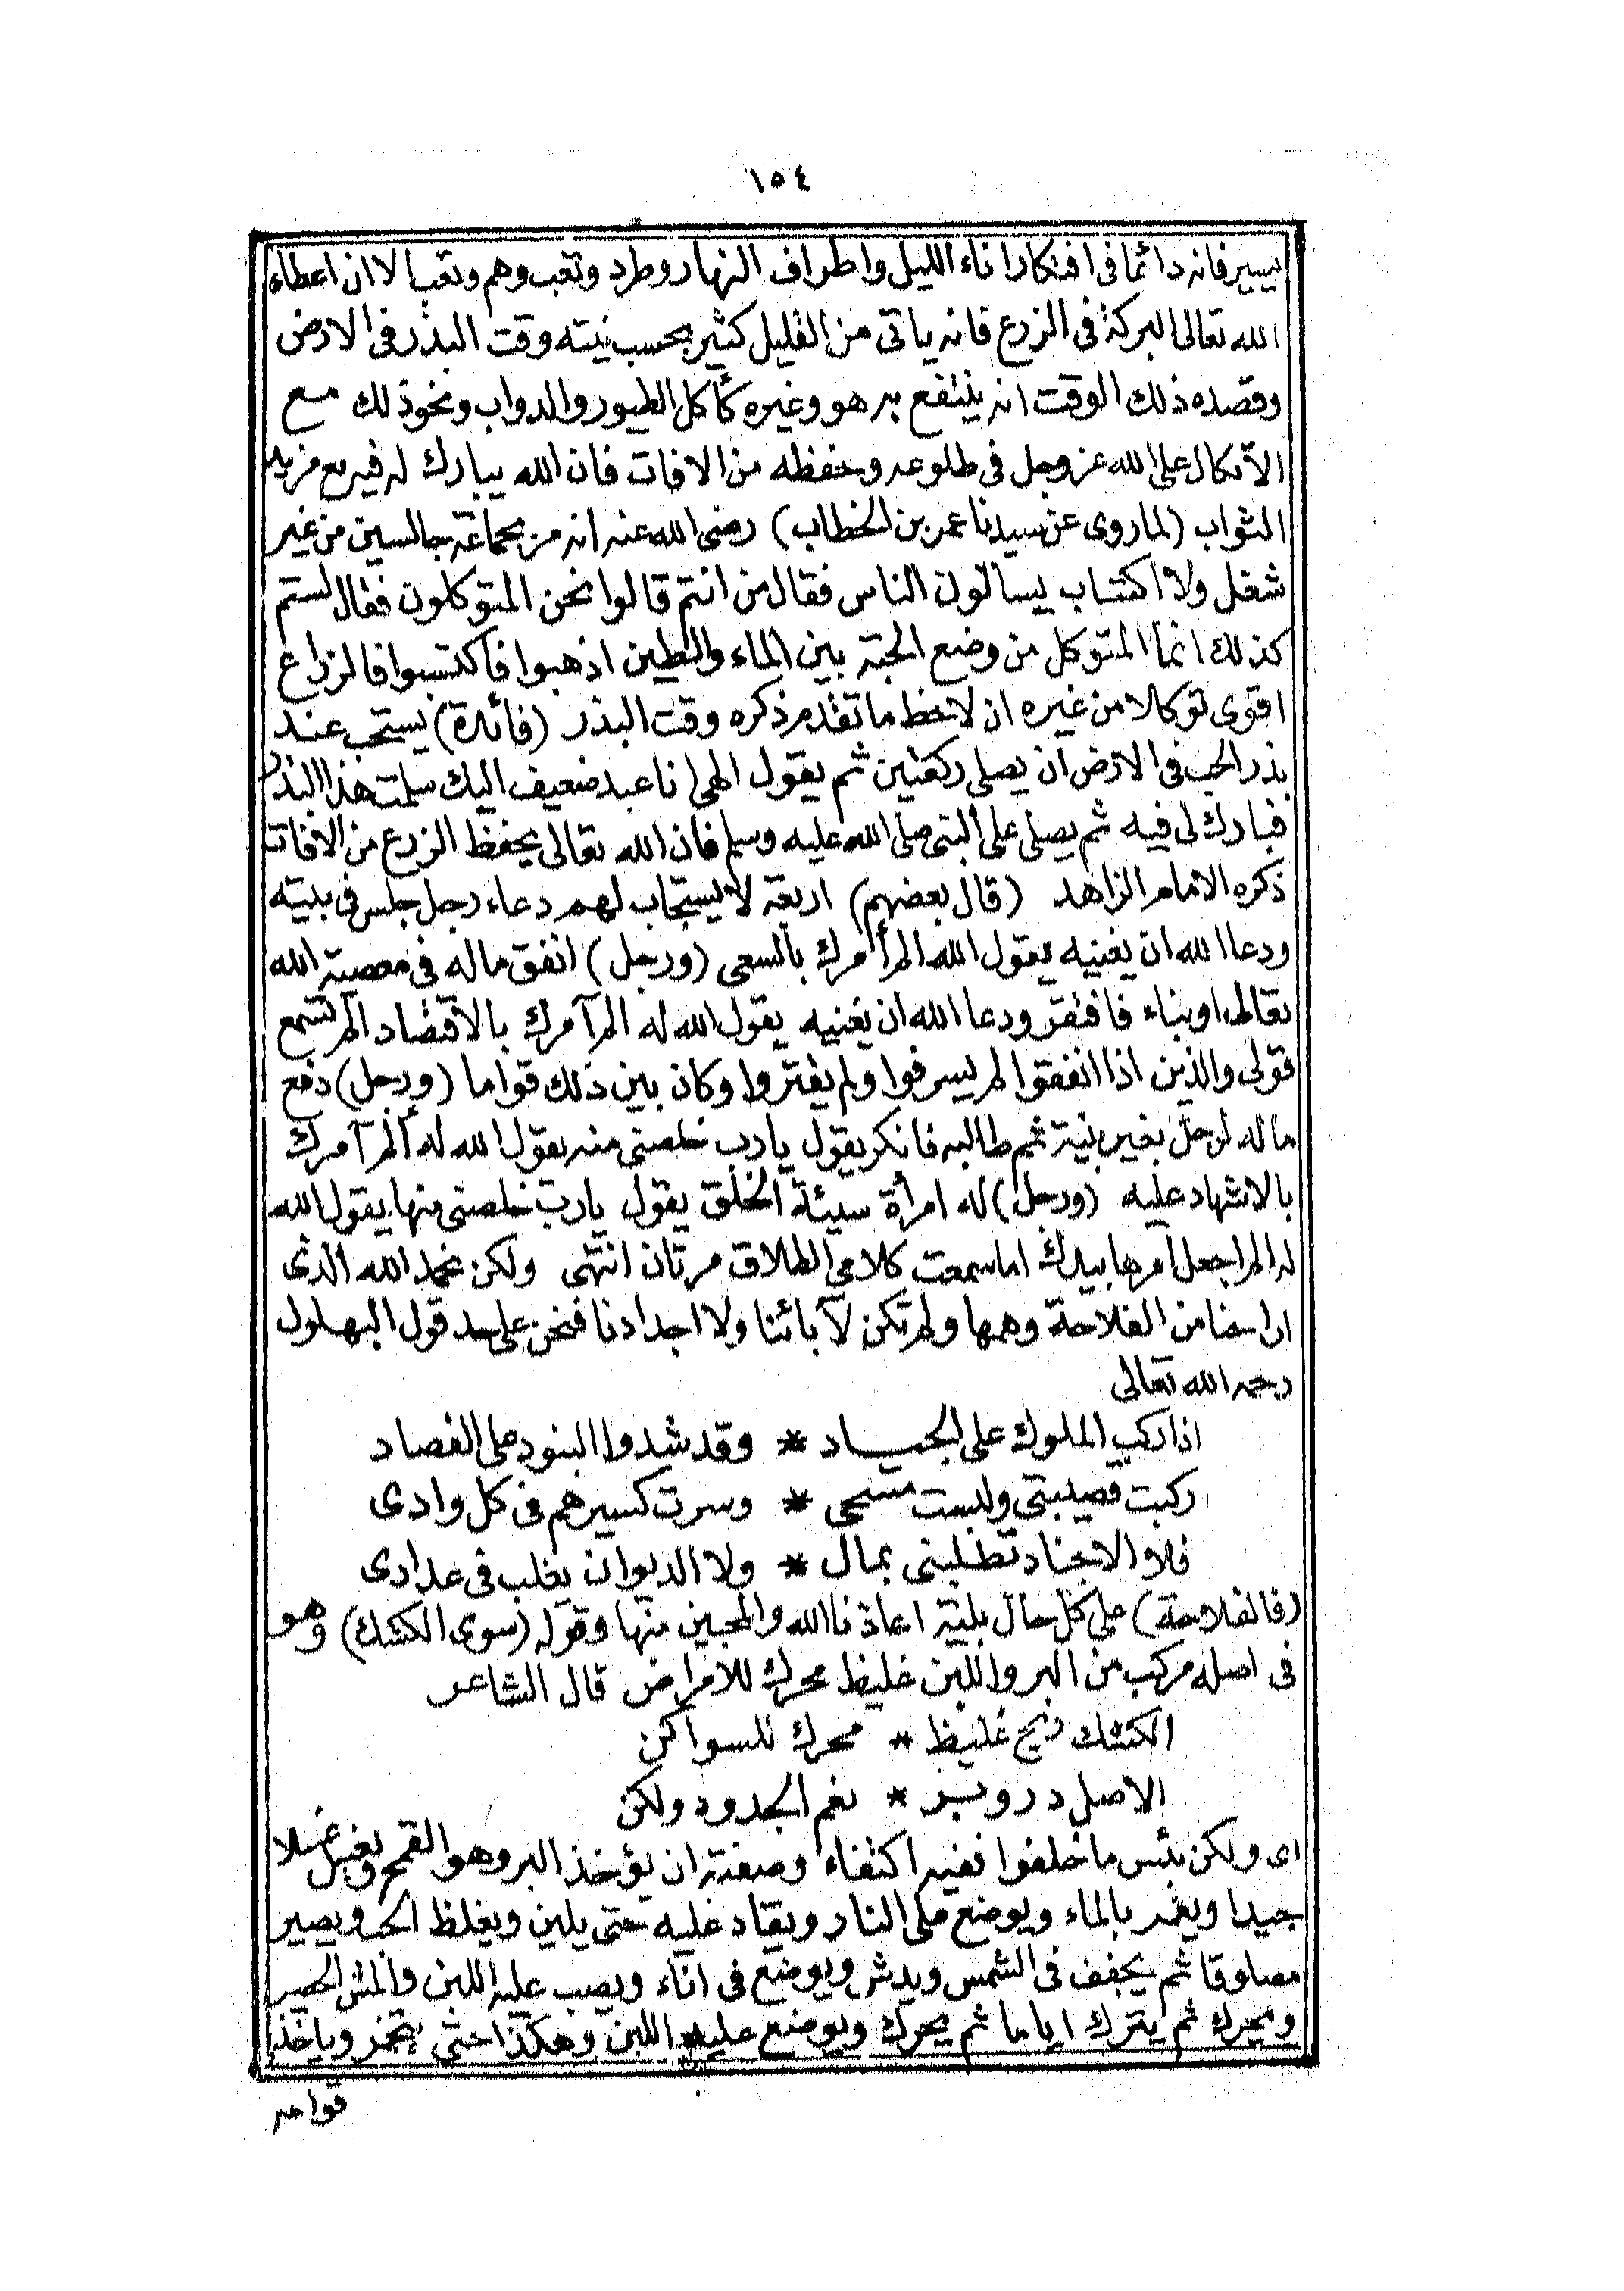 ١٥٤
يسير فانه دائما فى افتكار اناء الليل واطراف النهار وطرد وتعب وهم وتعب الا ان اعطاه
الله تعالى البركة فى الزرع فانه ياتى من القليل كثير بحسب نيته وقت البذر فى الارض
وقصده ذلك الوقت انه ينتفع به هو وغيره كأكل الطيور والدواب ونحو ذلك مع
الاتكال على الله عز وجل فى طلوعه وحفظه من الافات فان الله يبارك له فيه مع مزيد
الثواب (لما روى عن سيدنا عمر بن الخطاب) رضى الله عنه انه مر بجماعة جالسين من غير
شغل ولا اكتساب يسالون الناس فقال من انتم قالوا نحن المتوكلون فقال لستم
كذلك انما المتوكل من وضع الحبة بين الماء والطين اذهبوا فاكتسبوا فالزراع
اقوى توكلا من غيره ان لاحظ ما تقدم ذكره وقت البذر (فائدة) يستحب عند
بذر الحب فى الارض ان يصلى ركعتين ثم يقول الهى انا عبد ضعيف اليك سلمت هذا البذر
فبارك لى فيه ثم يصلى على النبى صلى الله عليه وسلم فان الله تعالى يحفظ الزرع من الافات
ذكره الامام الزاهد (قال بعضهم) اربعة لا يستجاب لهم دعاء رجل جلس فى بيته
ودعا الله ان يغنيه يقول الله الم أمرك بالسعى (ورجل) انفق ماله فى معصية الله
تعالى او بناء فافتقر ودعا الله ان يغنيه يقول الله له الم آمرك بالاقتصاد الم تسمع
قولى والذين اذا انفقوا لم يسرفوا ولم يقتروا وكان بين ذلك قواما (ورجل) دفع
ماله لرجل بغير بينة ثم طالبه فانكر يقول يا رب خلصنى منه يقول الله له ألم آمرك
بالاشهاد عليه (ورجل) له امرأة سيئة الخلق يقول يا رب خلصنى منها يقول الله
له الم اجعل أمرها بيدك اما سمعت كلامى الطلاق مرتان انتهى ولكن نحمد الله الذى
اراحنا من الفلاحة وهمها ولم تكن لآبائنا ولا اجدادنا فنحن على حد قول البهلول
رحمه الله تعالى
اذا ركب الملوك على الجياد * وقد شدوا البنود على الفصاد
ركبت قصيبتى ولبست مسحى * وسرت كسيرهم فى كل وادى
فلا الاجناد تطلبنى بمال * ولا الديوان يغلب فى عدادى
(فالفلاحة) على كل حال بلية اعاذنا الله والمحبين منها وقوله (سوى الكشك) وهو
فى اصله مركب من البر واللبن غليظ محرك للامراض قال الشاعر
الكشك ريح غليظ * محرك للسواكن
الاصل در وبر * نعم الجدود ولكن
اى ولكن بئس ما خلفوا ففيه اكتفاء وصفته ان يؤخذ البر وهو القمح ويغسل غسلا
جيدا ويغمر بالماء ويوضع على النار ويقاد عليه حتى يلين ويغلظ الحب ويصير
مصلوقا ثم يجفف فى الشمس ويدش ويوضع فى اناء ويصب عليه اللبن والمش الحصير
ويحرك ثم يترك اياما ثم يحرك ويوضع عليه اللبن وهكذا حتى يتخمر وياخذ
قوامه